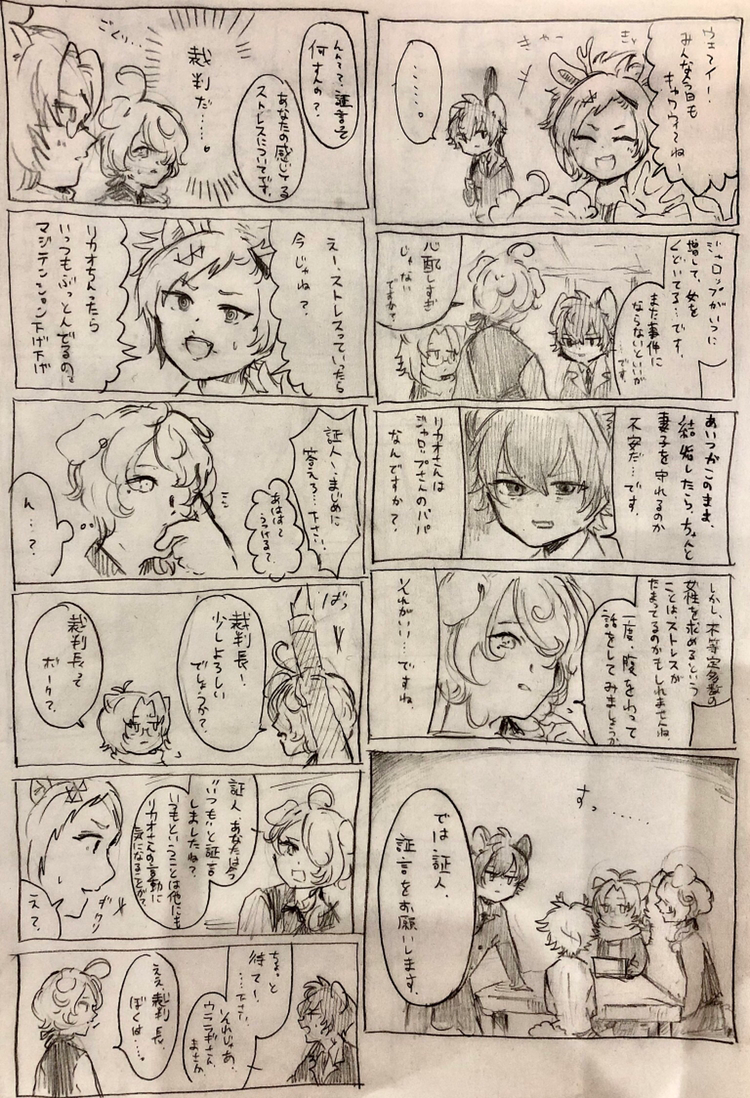 ウェーイ!
みんな今日も
キャワウィ〜ね!
きゃ
きゃー
……。
ジャロップがいつに
増して、女を
くどいてる…です。
また事件に
ならないといいが
…です。
心配しすぎ
じゃない
ですか?
あいつがこのまま、
結婚したら、ちゃんと
妻子を守れるのか
不安だ…です。
リカオさんは
ジャロップさんのパパ
なんですか?
しかし、不特定多数の
女性を求めるという
ことはストレスが
たまってるのかもしれませんね
一度、腹をわって
話をしてみましょうか
それがいい…ですね。
すっ……
では証人、
証言をお願いします。
んんで、証言って
何すんの?
あなたの感じてる
ストレスについてです。
裁判だ……。
ごくっ…
えー、ストレスっていったら
今じゃね?
リカオちんったら
いっつもぶっとんでるの。
マジテンション下げ下げ
証人!、まじめに
答えろ…下さい。
あははて
うっける?
ん…?
ばっ
裁判長!
少しよろしい
でしょうか?
裁判長って
ボーク?
証人、あなたは今
"いつも"と証言
しましたね?
いつもということは他にも
リカオさんの言動に
気になることが?
ギクリ
え?
ちょっと
待て!
…下さい、
それじゃあ、
ウララギさん、
まさか
ええ、裁判長、
ぼくは…。